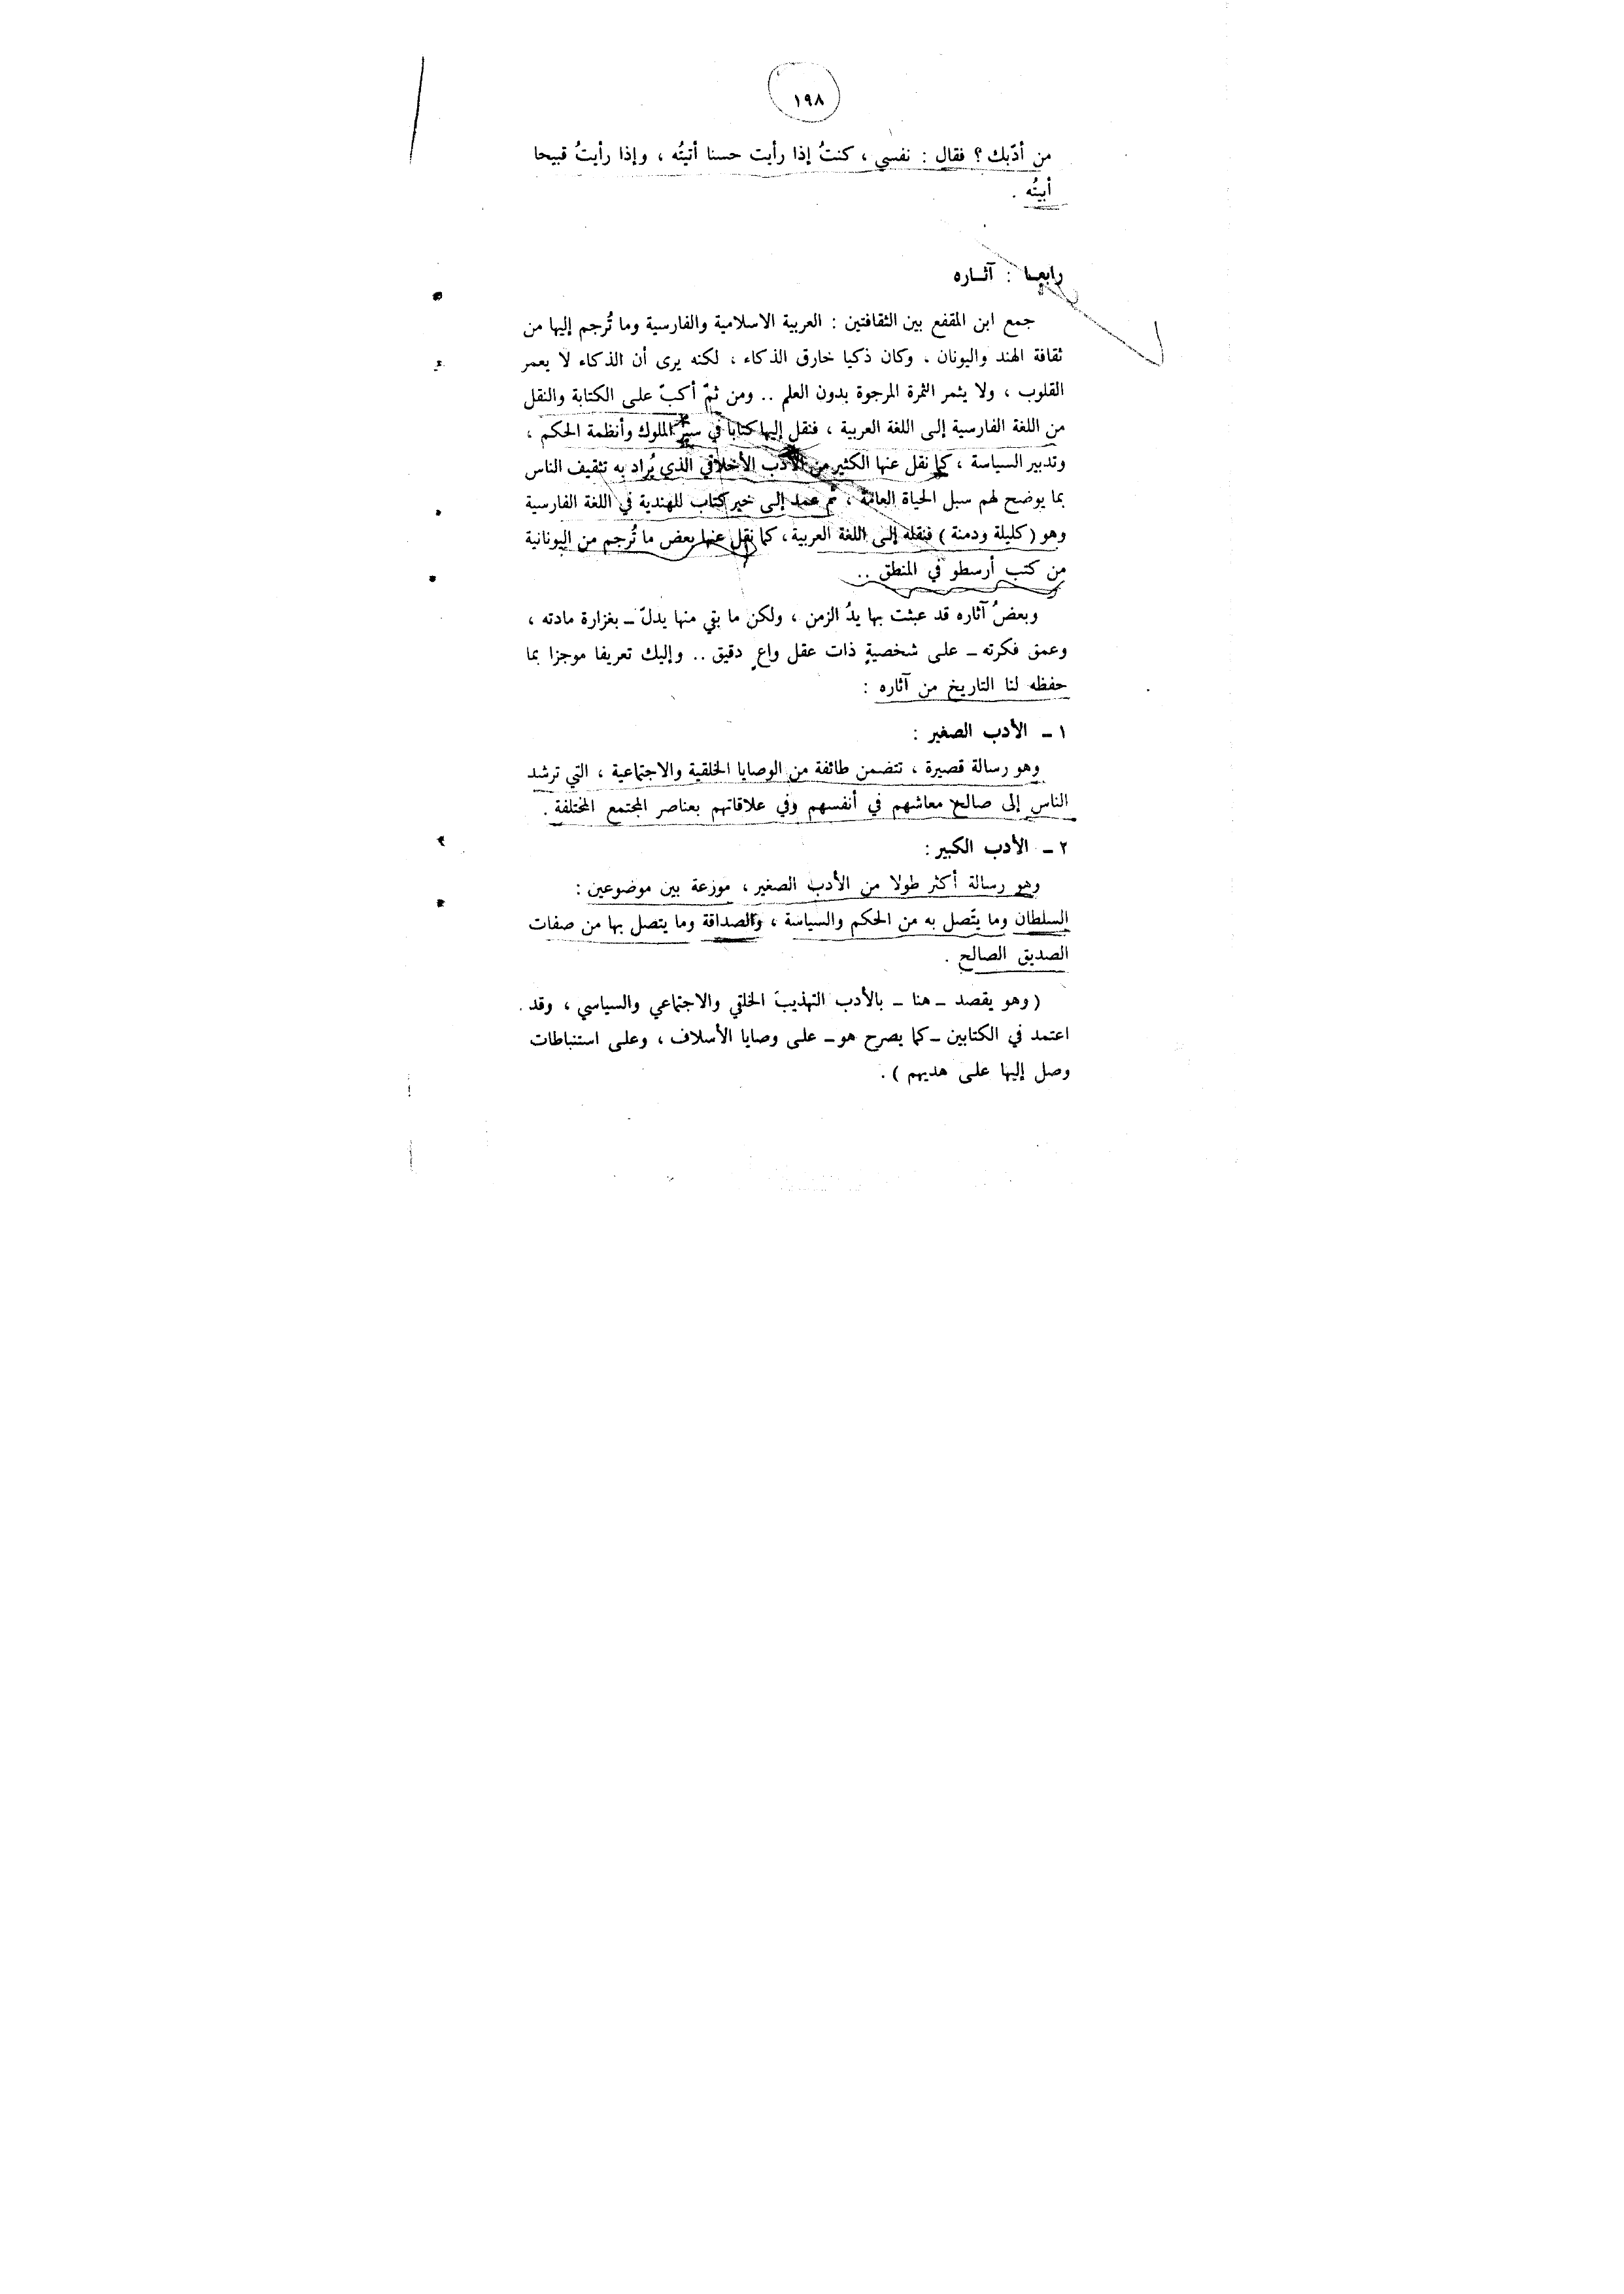 ١٩٨
من أدّبك ؟ فقال : نفسي ، كنتُ إذا رأيت حسنا أتيتُه ، وإذا رأيتُ قبيحا
أبيتُه .
رابعا : آثـاره
جمع ابن المقفع بين الثقافتين : العربية الاسلامية والفارسية وما تُرجم إليها من
ثقافة الهند واليونان ، وكان ذكيا خارق الذكاء ، لكنه يرى أن الذكاء لا يعمر
القلوب ، ولا يثمر الثمرة المرجوة بدون العلم .. ومن ثمّ أكبّ على الكتابة والنقل
من اللغة الفارسية إلى اللغة العربية ، فنقل إليها كتابا في سير الملوك وأنظمة الحكم ،
وتدبير السياسة ، كما نقل عنها الكثير من الأدب الأخلاقي الذي يُراد به تثقيف الناس
بما يوضح لهم سبل الحياة العامة ، ثم عمد إلى خير كتاب للهندية في اللغة الفارسية
وهو ( كليلة ودمنة ) فنقله إلى اللغة العربية ، كما نقل عنها بعض ما تُرجم من اليونانية
من كتب أرسطو في المنطق ..
وبعضُ آثاره قد عبثت بها يدُ الزمن ، ولكن ما بقي منها يدلّ ـ بغزارة مادته ،
وعمق فكرته ـ على شخصيةٍ ذات عقل واعٍ دقيق .. وإليك تعريفا موجزا بما
حفظه لنا التاريخ من آثاره :
١ ـ الأدب الصغير :
وهو رسالة قصيرة ، تتضمن طائفة من الوصايا الخلقية والاجتماعية ، التي ترشد
الناس إلى صالح معاشهم في أنفسهم وفي علاقاتهم بعناصر المجتمع المختلفة .
٢ ـ الأدب الكبير :
وهو رسالة أكثر طولا من الأدب الصغير ، موزعة بين موضوعين :
السلطان وما يتّصل به من الحكم والسياسة ، والصداقة وما يتصل بها من صفات
الصديق الصالح .
( وهو يقصد ـ هنا ـ بالأدب التهذيبَ الخلقي والاجتماعي والسياسي ، وقد
اعتمد في الكتابين ـ كما يصرح هو ـ على وصايا الأسلاف ، وعلى استنباطات
وصل إليها على هديهم ) .